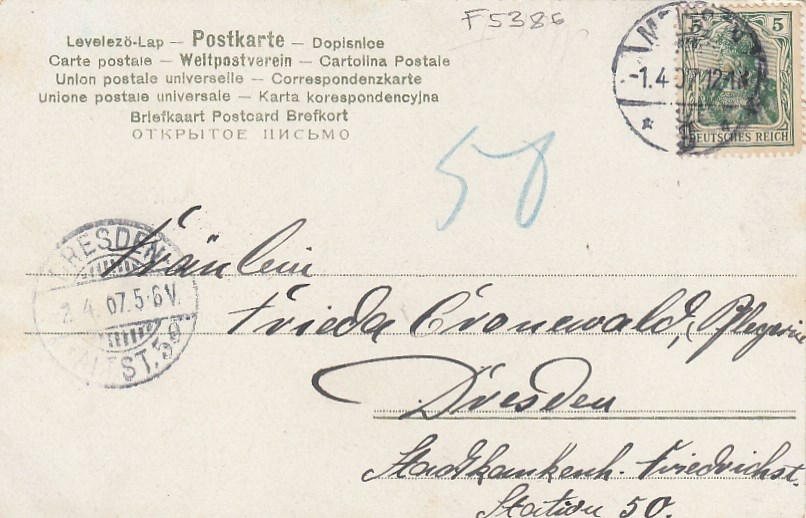 F5386
Levelező-Lap — Postkarte — Dopisnice
Carte postale — Weltpostverein — Cartolina Postale
Union postale universelle — Correspondenzkarte
Unione postale universale — Karta korespondencyjna
Briefkaart Postcard Brefkort
ОТКРЫТОЕ ПИСЬМО
5 5
-1.4.07.12-1
DEUTSCHES REICH
50
DRESDEN
2.4.07.5-6V.
ALTST.
Fräulein
Frieda Cronewald,
Dresden
Stadtkrankenh. Friedrichst.
Station 50.